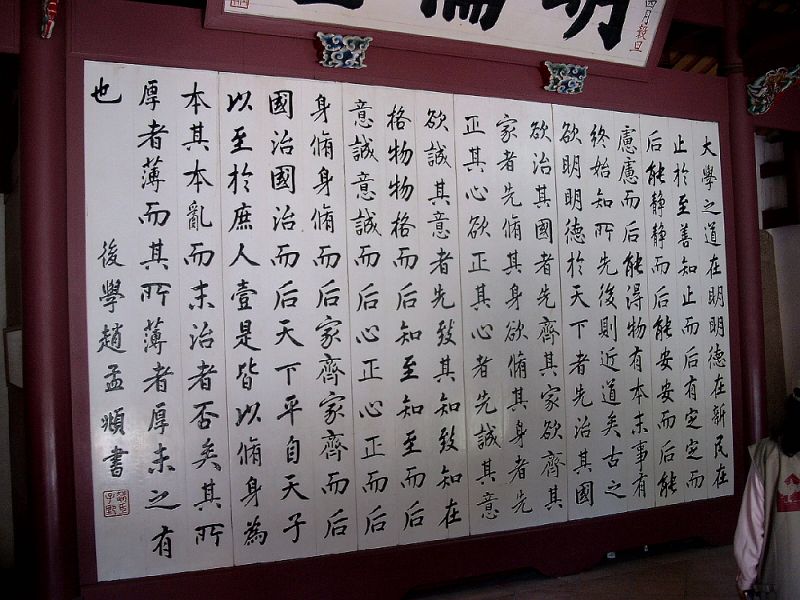 月穀旦
大學之道在明明德在新民在
止於至善知止而后有定定而
后能静静而后能安安而后能
慮慮而后能得物有本末事有
終始知所先後則近道矣古之
欲明明德於天下者先治其國
欲治其國者先齊其家欲齊其
家者先脩其身欲脩其身者先
正其心欲正其心者先誠其意
欲誠其意者先致其知致知在
格物物格而后知至知至而后
意誠意誠而后心正心正而后
身脩身脩而后家齊家齊而后
國治國治而后天下平自天子
以至於庶人壹是皆以脩身為
本其本亂而末治者否矣其所
厚者薄而其所薄者厚未之有
也
後學趙孟頫書